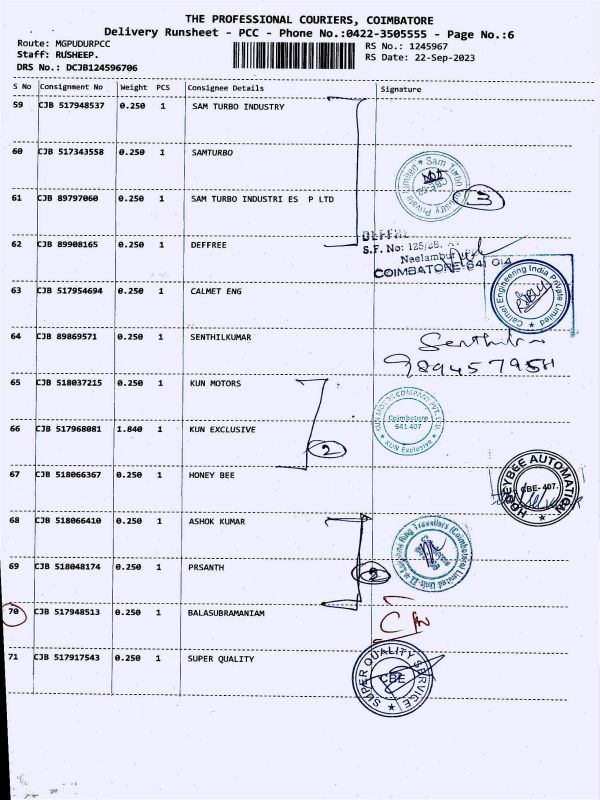 THE PROFESSIONAL COURIERS, COIMBATORE
Delivery Runsheet - PCC - Phone No.:0422-3505555 - Page No.:6
Route: MGPUDURPCC
RS No.: 1245967
Staff: RUSHEEP.
RS Date: 22-Sep-2023
DRS No.: DCJB124596706
S No Consignment No Weight PCS Consignee Details Signature
59 CJB 517948537 0.250 1 SAM TURBO INDUSTRY
60 CJB 517343558 0.250 1 SAMTURBO
Sam Turbo Industry Private Limited
3
61 CJB 89797060 0.250 1 SAM TURBO INDUSTRI ES P LTD
62 CJB 89908165 0.250 1 DEFFREE
S.F. No: 125/2B,
Neelambur
COIMBATORE-641 014
63 CJB 517954694 0.250 1 CALMET ENG
Calmet Engineering India Private Limited
64 CJB 89869571 0.250 1 SENTHILKUMAR
65 CJB 518037215 0.250 1 KUN MOTORS
Coimbatore
641 407
KUN Exclusive
66 CJB 517968081 1.840 1 KUN EXCLUSIVE
2
67 CJB 518066367 0.250 1 HONEY BEE
HONEYBEE AUTOMATION
CBE-407.
68 CJB 518066410 0.250 1 ASHOK KUMAR
69 CJB 518048174 0.250 1 PRSANTH
2
70 CJB 517948513 0.250 1 BALASUBRAMANIAM
71 CJB 517917543 0.250 1 SUPER QUALITY
SUPER QUALITY SERVICE
CBE